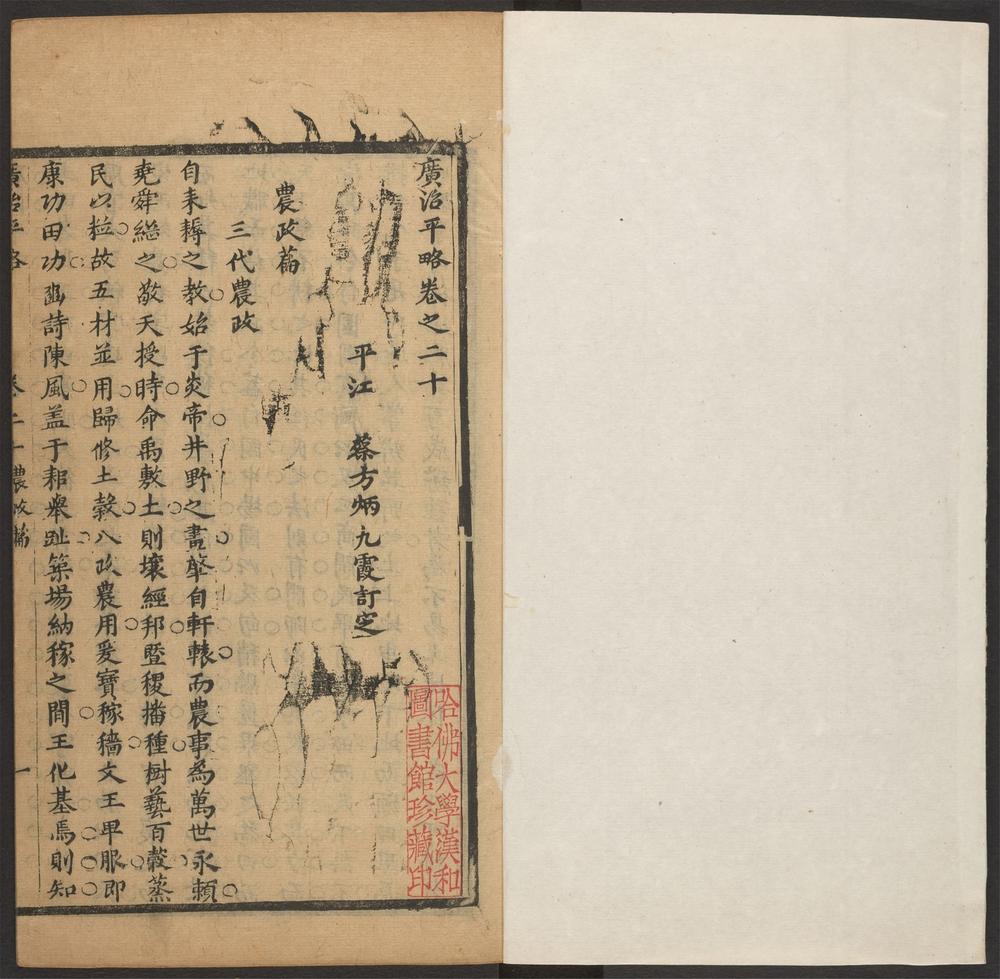 廣治平略卷之二十
平江　蔡方炳九霞訂定
農政篇
三代農政
自耒耨之教始于炎帝井野之畫肇自軒轅而農事為萬世永賴
堯舜繼之敬天授時命禹敷土則壤經邦暨稷播種樹藝百穀蒸
民以粒故五材並用歸修土穀八政農用爰寶稼穡文王卑服即
康功田功豳詩陳風盖于耜舉趾築場納稼之間王化基焉則知
廣治平略　卷二十農政篇　一
哈佛大學漢和
圖書館珍藏印